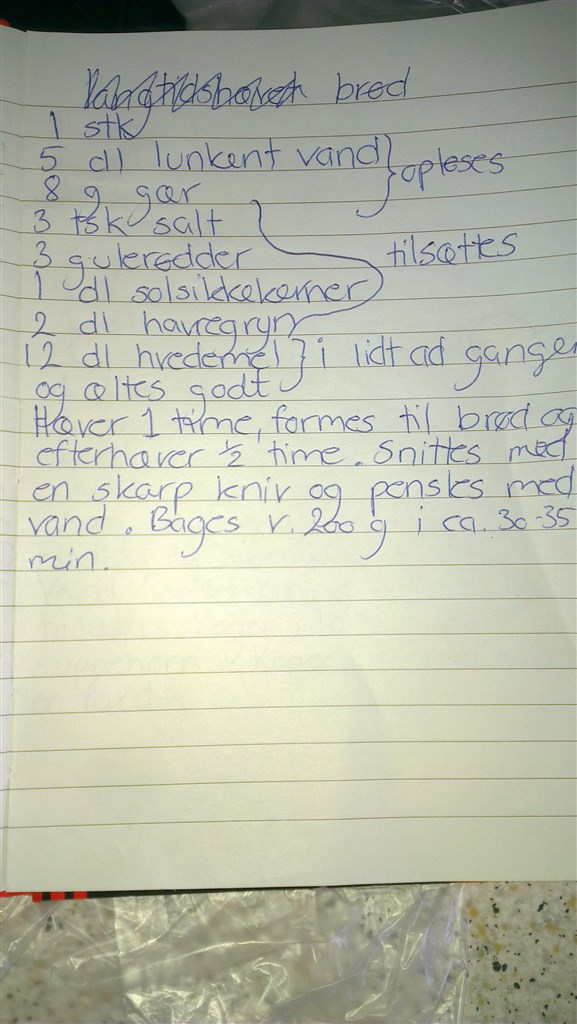 langtidshævet brød
1 stk
5 dl lunkent vand } opløses
8 g gær
3 tsk salt
3 gulerødder tilsættes
1 dl solsikkekerner
2 dl havregryn
12 dl hvedemel } i lidt ad gangen
og æltes godt
Hæver 1 time, formes til brød og
efterhæver ½ time. Snittes med
en skarp kniv og pensles med
vand. Bages v. 200 g i ca. 30-35
min.